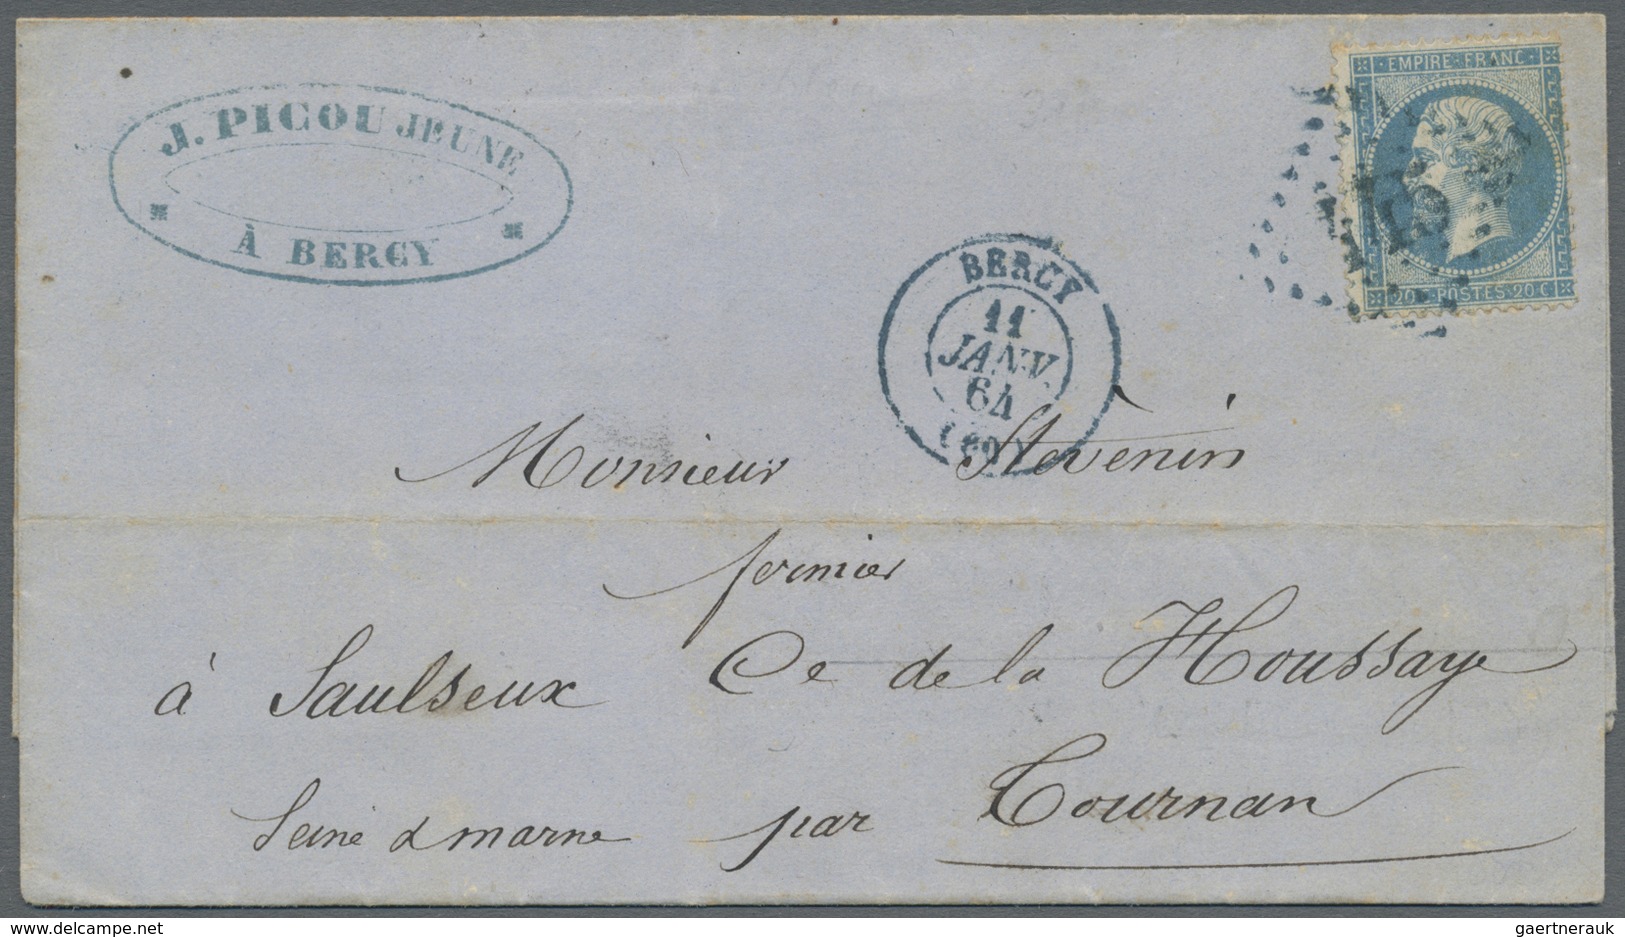 J. PICOU JEUNE
À BERCY
EMPIRE FRANC
20 C POSTES 20 C
BERCY
11
JANV
64
Monsieur Stévenin
fermier
à Saulseux Ce de la Houssaye
Seine & marne par Tournan
hipstamp.com
gaertnerauk